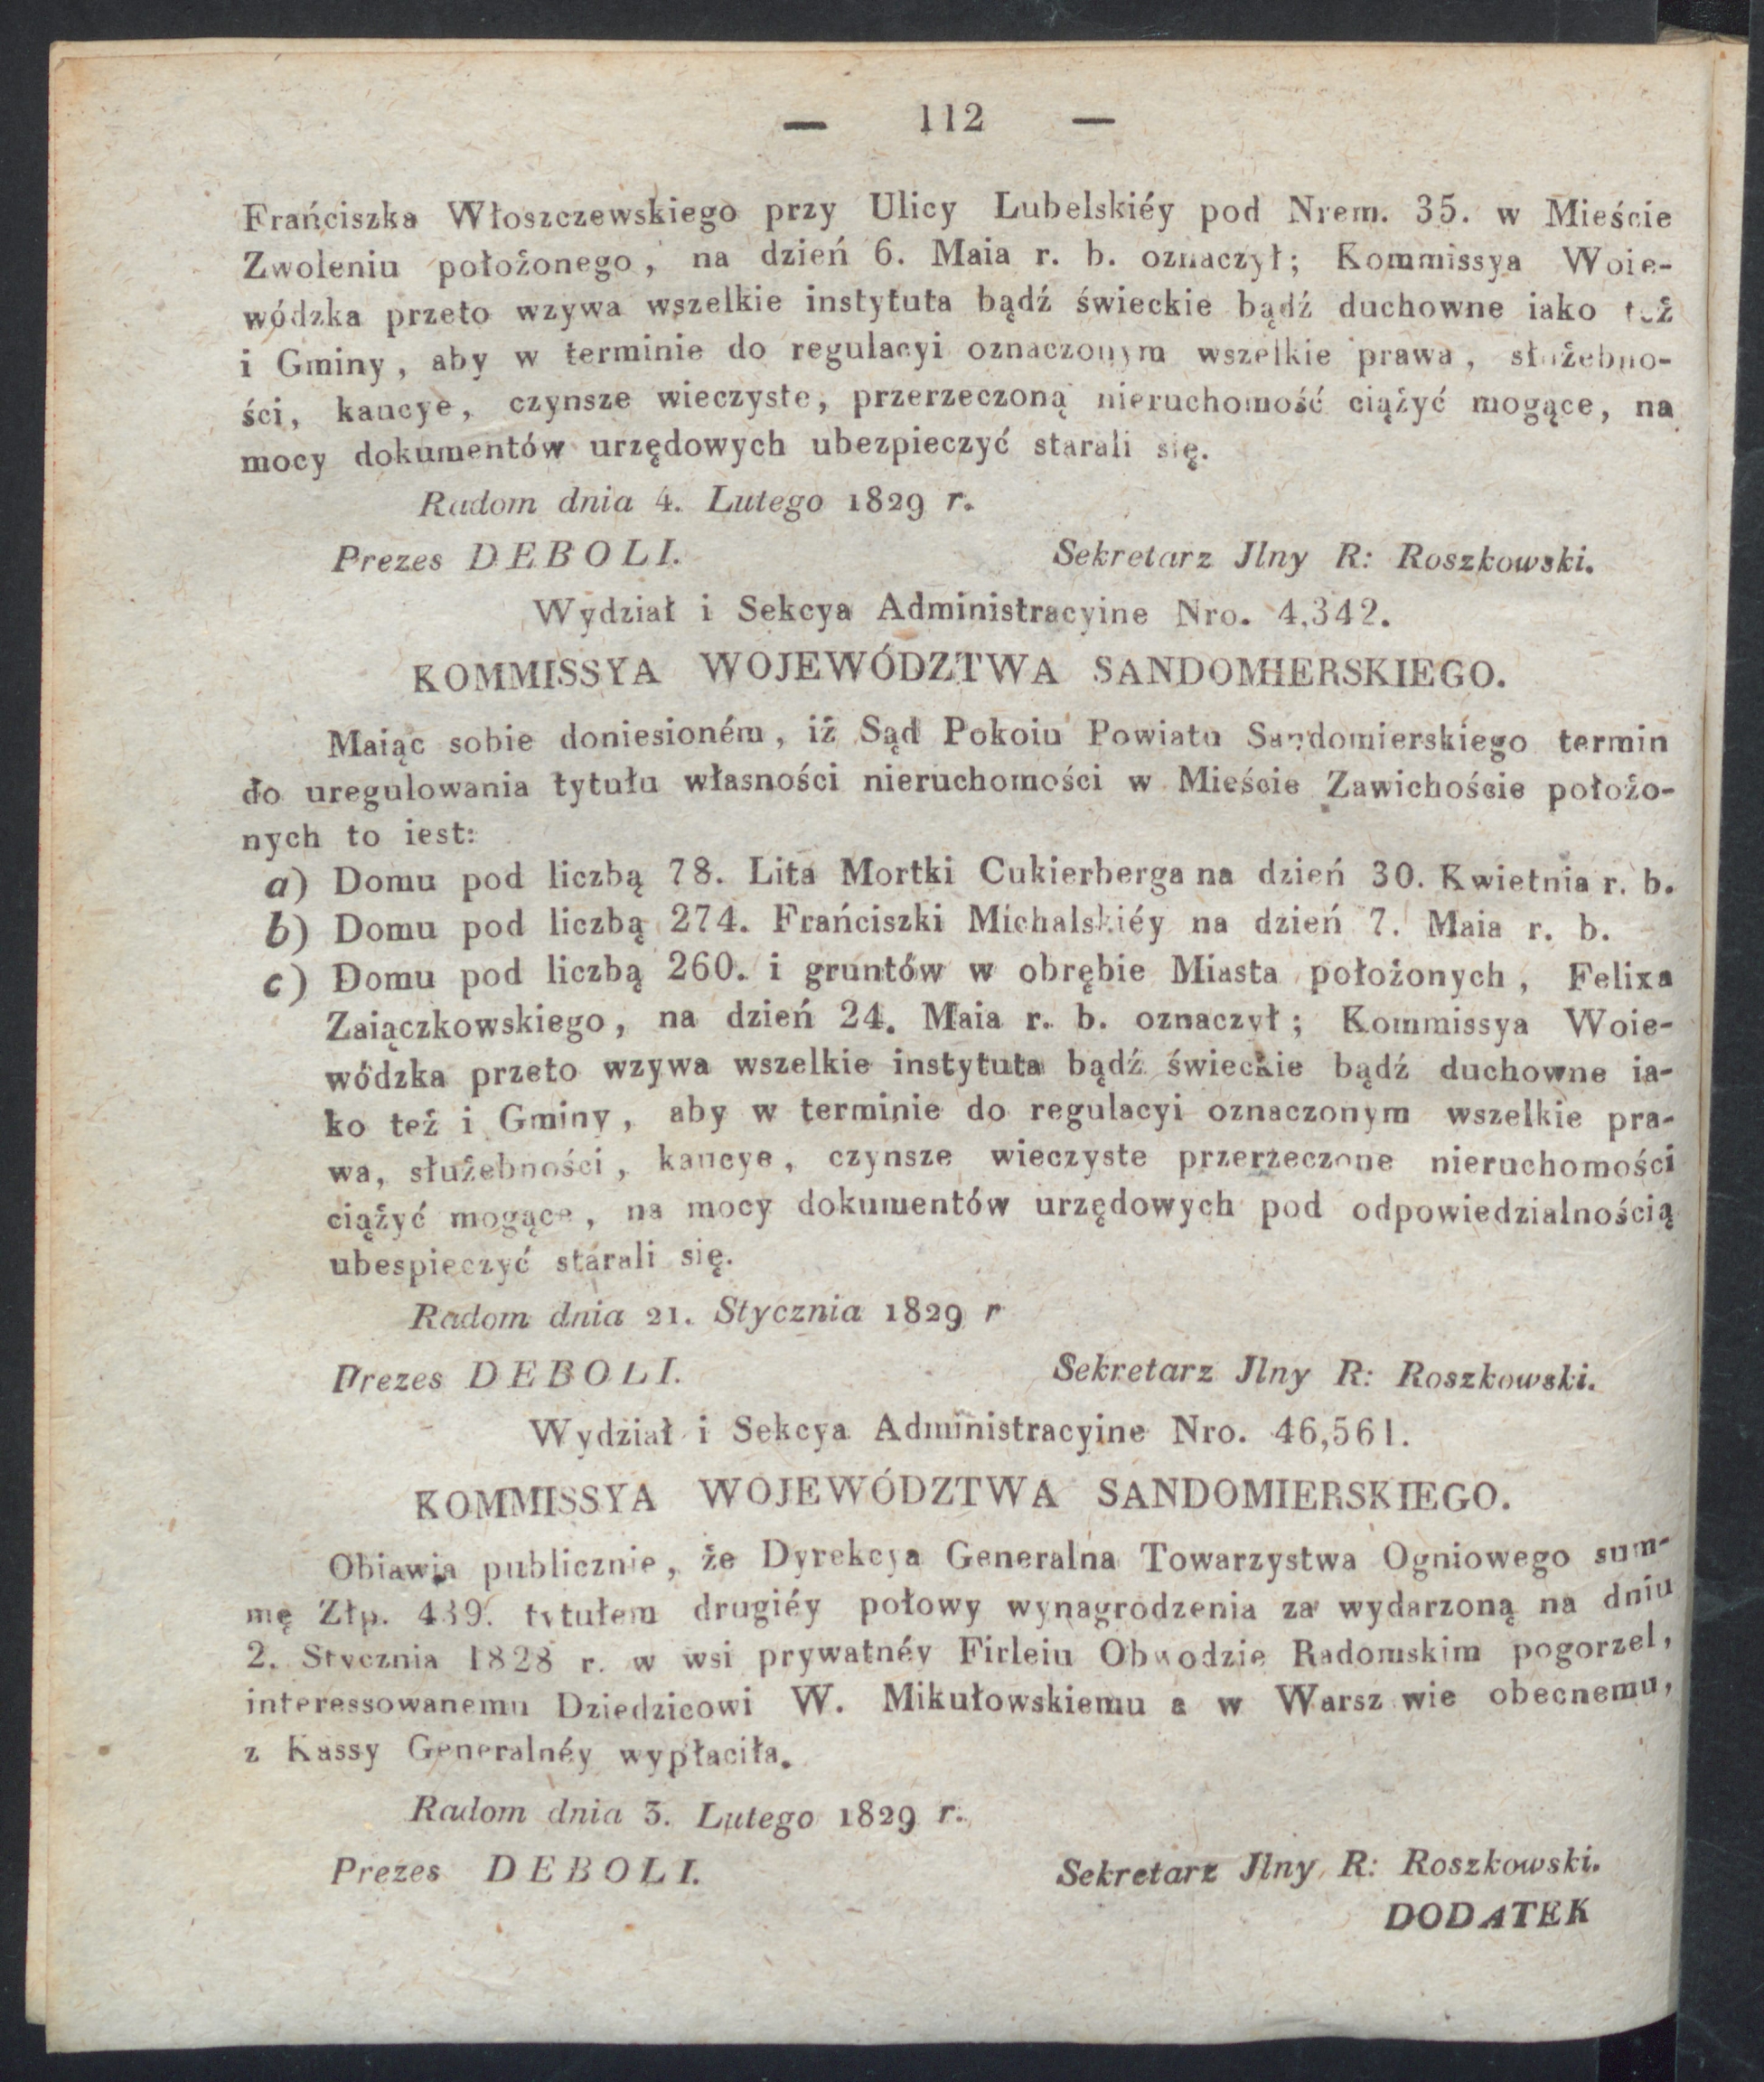 — 112 —
Frańciszka Włoszczewskiego przy Ulicy Lubelskiéy pod Nrem. 35. w Mieście
Zwoleniu położonego, na dzień 6. Maia r. b. oznaczył; Kommissya Woie-
wódzka przeto wzywa wszelkie instytuta bądź świeckie bądź duchowne iako też
i Gminy, aby w terminie do regulacyi oznaczonym wszelkie prawa, służebno-
ści, kaucye, czynsze wieczyste, przerzeczoną nieruchomość ciążyć mogące, na
mocy dokumentów urzędowych ubezpieczyć starali się.
Radom dnia 4. Lutego 1829 r.
Prezes DEBOLI. Sekretarz Jlny R: Roszkowski.
Wydział i Sekcya Administracyine Nro. 4,342.
KOMMISSYA WOJEWÓDZTWA SANDOMIERSKIEGO.
Maiąc sobie doniesioném, iż Sąd Pokoiu Powiatu Sandomierskiego termin
do uregulowania tytułu własności nieruchomości w Mieście Zawichoście położo-
nych to iest:
a) Domu pod liczbą 78. Lita Mortki Cukierberga na dzień 30. Kwietnia r. b.
b) Domu pod liczbą 274. Frańciszki Michalskiéy na dzień 7. Maia r. b.
c) Domu pod liczbą 260. i gruntów w obrębie Miasta położonych, Felixa
Zaiączkowskiego, na dzień 24. Maia r. b. oznaczył; Kommissya Woie-
wódzka przeto wzywa wszelkie instytuta bądź świeckie bądź duchowne ia-
ko też i Gminy, aby w terminie do regulacyi oznaczonym wszelkie pra-
wa, służebności, kaucye, czynsze wieczyste przerzeczone nieruchomości
ciążyć mogące, na mocy dokumentów urzędowych pod odpowiedzialnością
ubespieczyć starali się.
Radom dnia 21. Stycznia 1829 r
Prezes DEBOLI. Sekretarz Jlny R: Roszkowski.
Wydział i Sekcya Administracyine Nro. 46,561.
KOMMISSYA WOJEWÓDZTWA SANDOMIERSKIEGO.
Obiawia publicznie, że Dyrekcya Generalna Towarzystwa Ogniowego sum-
mę Złp. 439. tytułem drugiéy połowy wynagrodzenia za wydarzoną na dniu
2. Stycznia 1828 r. w wsi prywatnéy Firleiu Obwodzie Radomskim pogorzel,
interessowanemu Dziedzicowi W. Mikułowskiemu a w Warsz wie obecnemu,
z Kassy Generalnéy wypłaciła.
Radom dnia 3. Lutego 1829 r.
Prezes DEBOLI. Sekretarz Jlny R: Roszkowski.
DODATEK